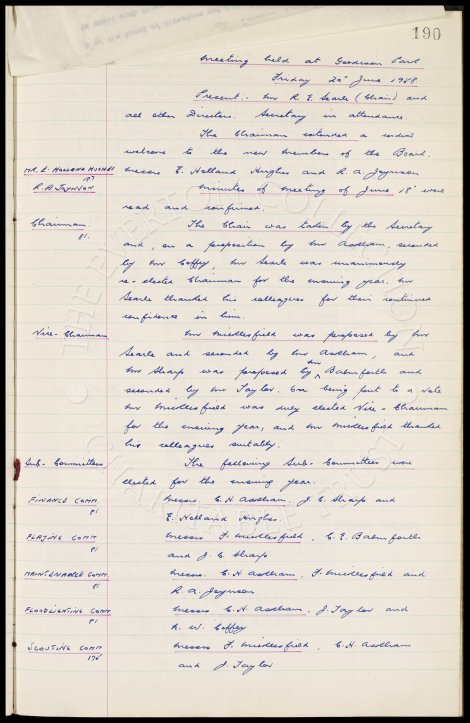 190
Meeting held at Goodison Park
Friday 20th June 1958.
Present: Mr R. E. Searle (Chair) and
all other Directors. Secretary in attendance.
The Chairman extended a cordial
welcome to the new members of the Board.
MR. E. HOLLAND HUGHES
Messrs E. Holland Hughes and R. A. Joynson
R. A. JOYNSON
Minutes of meeting of June 18th were
read and confirmed.
Chairman
The Chair was taken by the Secretary
81.
and, on a proposition by Mr Askham, seconded
by Mr Coffey, Mr Searle was unanimously
re-elected Chairman for the ensuing year. Mr
Searle thanked his colleagues for their continued
confidence in him.
Vice-Chairman
Mr Micklesfield was proposed by Mr
Searle and seconded by Mr Askham, and
Mr Sharp was proposed by Mr Balmforth and
seconded by Mr Taylor. On being put to a vote
Mr Micklesfield was duly elected Vice-Chairman
for the ensuing year, and Mr Micklesfield thanked
his colleagues suitably.
Sub-Committees
The following Sub-Committees were
elected for the ensuing year.
FINANCE COMM.
Messrs. C. H. Askham, J. C. Sharp and
81
E. Holland Hughes.
PLAYING COMM
Messrs F. Micklesfield, C. E. Balmforth
81
and J. C. Sharp
MAINTENANCE COMM.
Messrs. C. H. Askham, F. Micklesfield and
81
R. A. Joynson
FLOODLIGHTING COMM
Messrs C. H. Askham, J. Taylor and
81
R. W. Coffey
SCOUTING COMM
Messrs F. Micklesfield, C. H. Askham
178
and J. Taylor